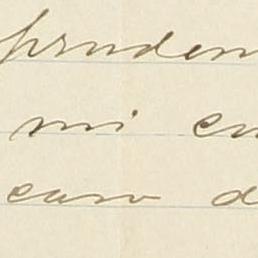 pruden
mi en
caso d